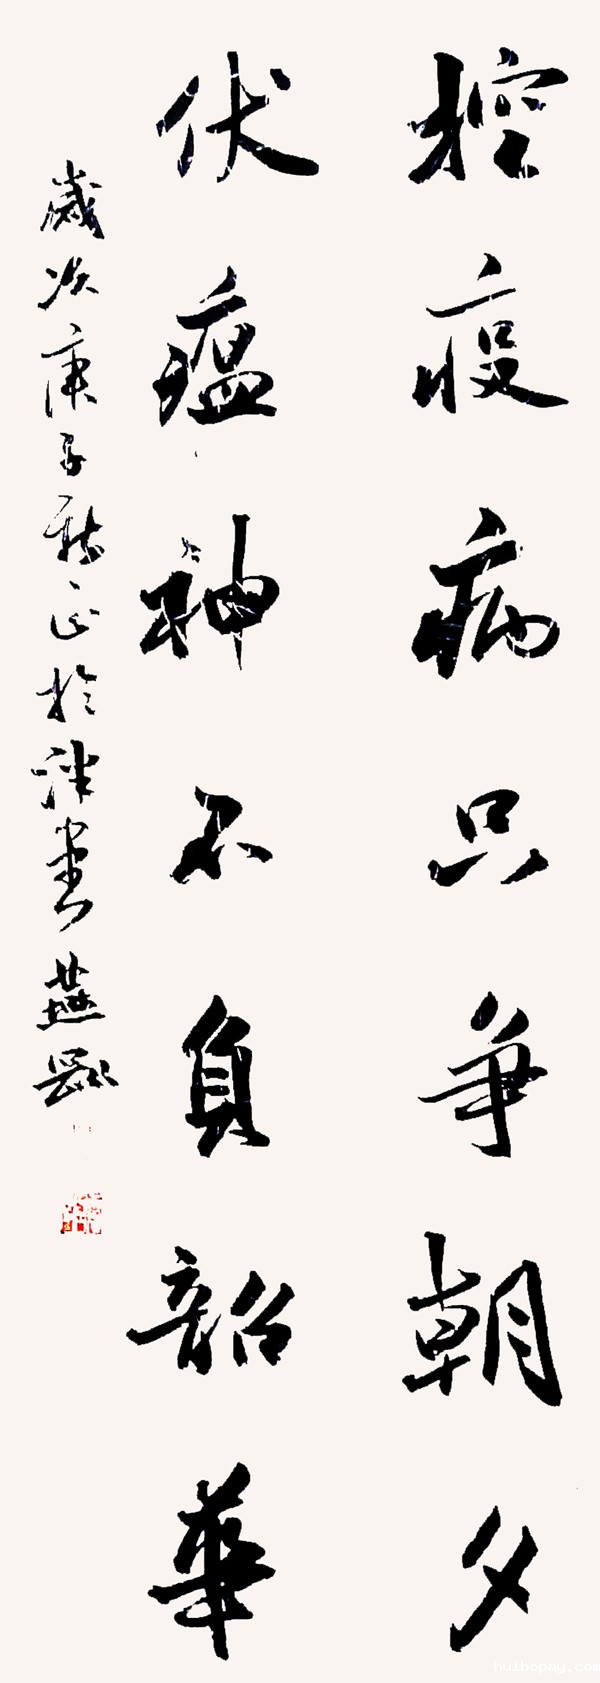 控疫病只争朝夕
伏瘟神不負韶華
歲次庚子新正於津書燕
huibopay.com